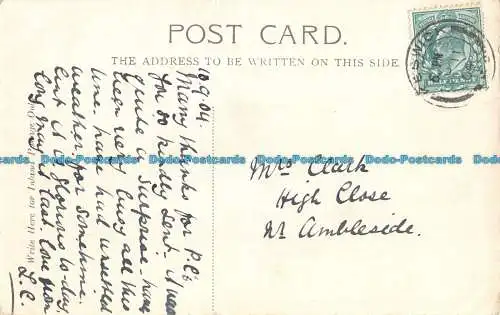 POST CARD.
THE ADDRESS TO BE WRITTEN ON THIS SIDE.
KESWICK
10.9.04.
Many thanks for P.C's
so kindly sent. It was
quite a surprise. have
been very busy all this
time. have had unsettled
weather for sometime.
but it is glorious to-day.
long may it last. Love from
L.C.
Write Here for Inland Postage Only
Mrs Clark
High Close
Nr Ambleside.
Dodo-Postcards Dodo-Postcards Dodo-Postcards Dodo-Postcards Dodo-Postcards